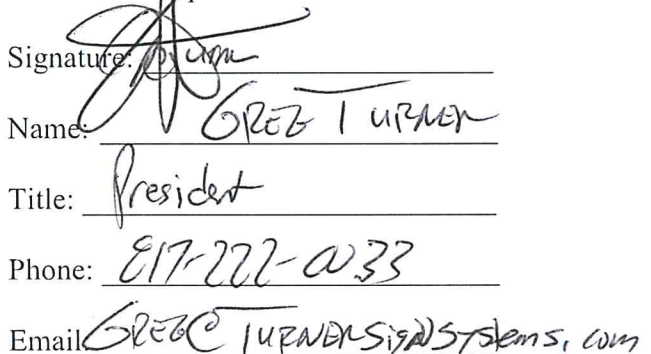 Signature:
Name: GREG TURNER
Title: President
Phone: 817-222-0033
Email GREG@TURNERSIGNSYSTEMS.com